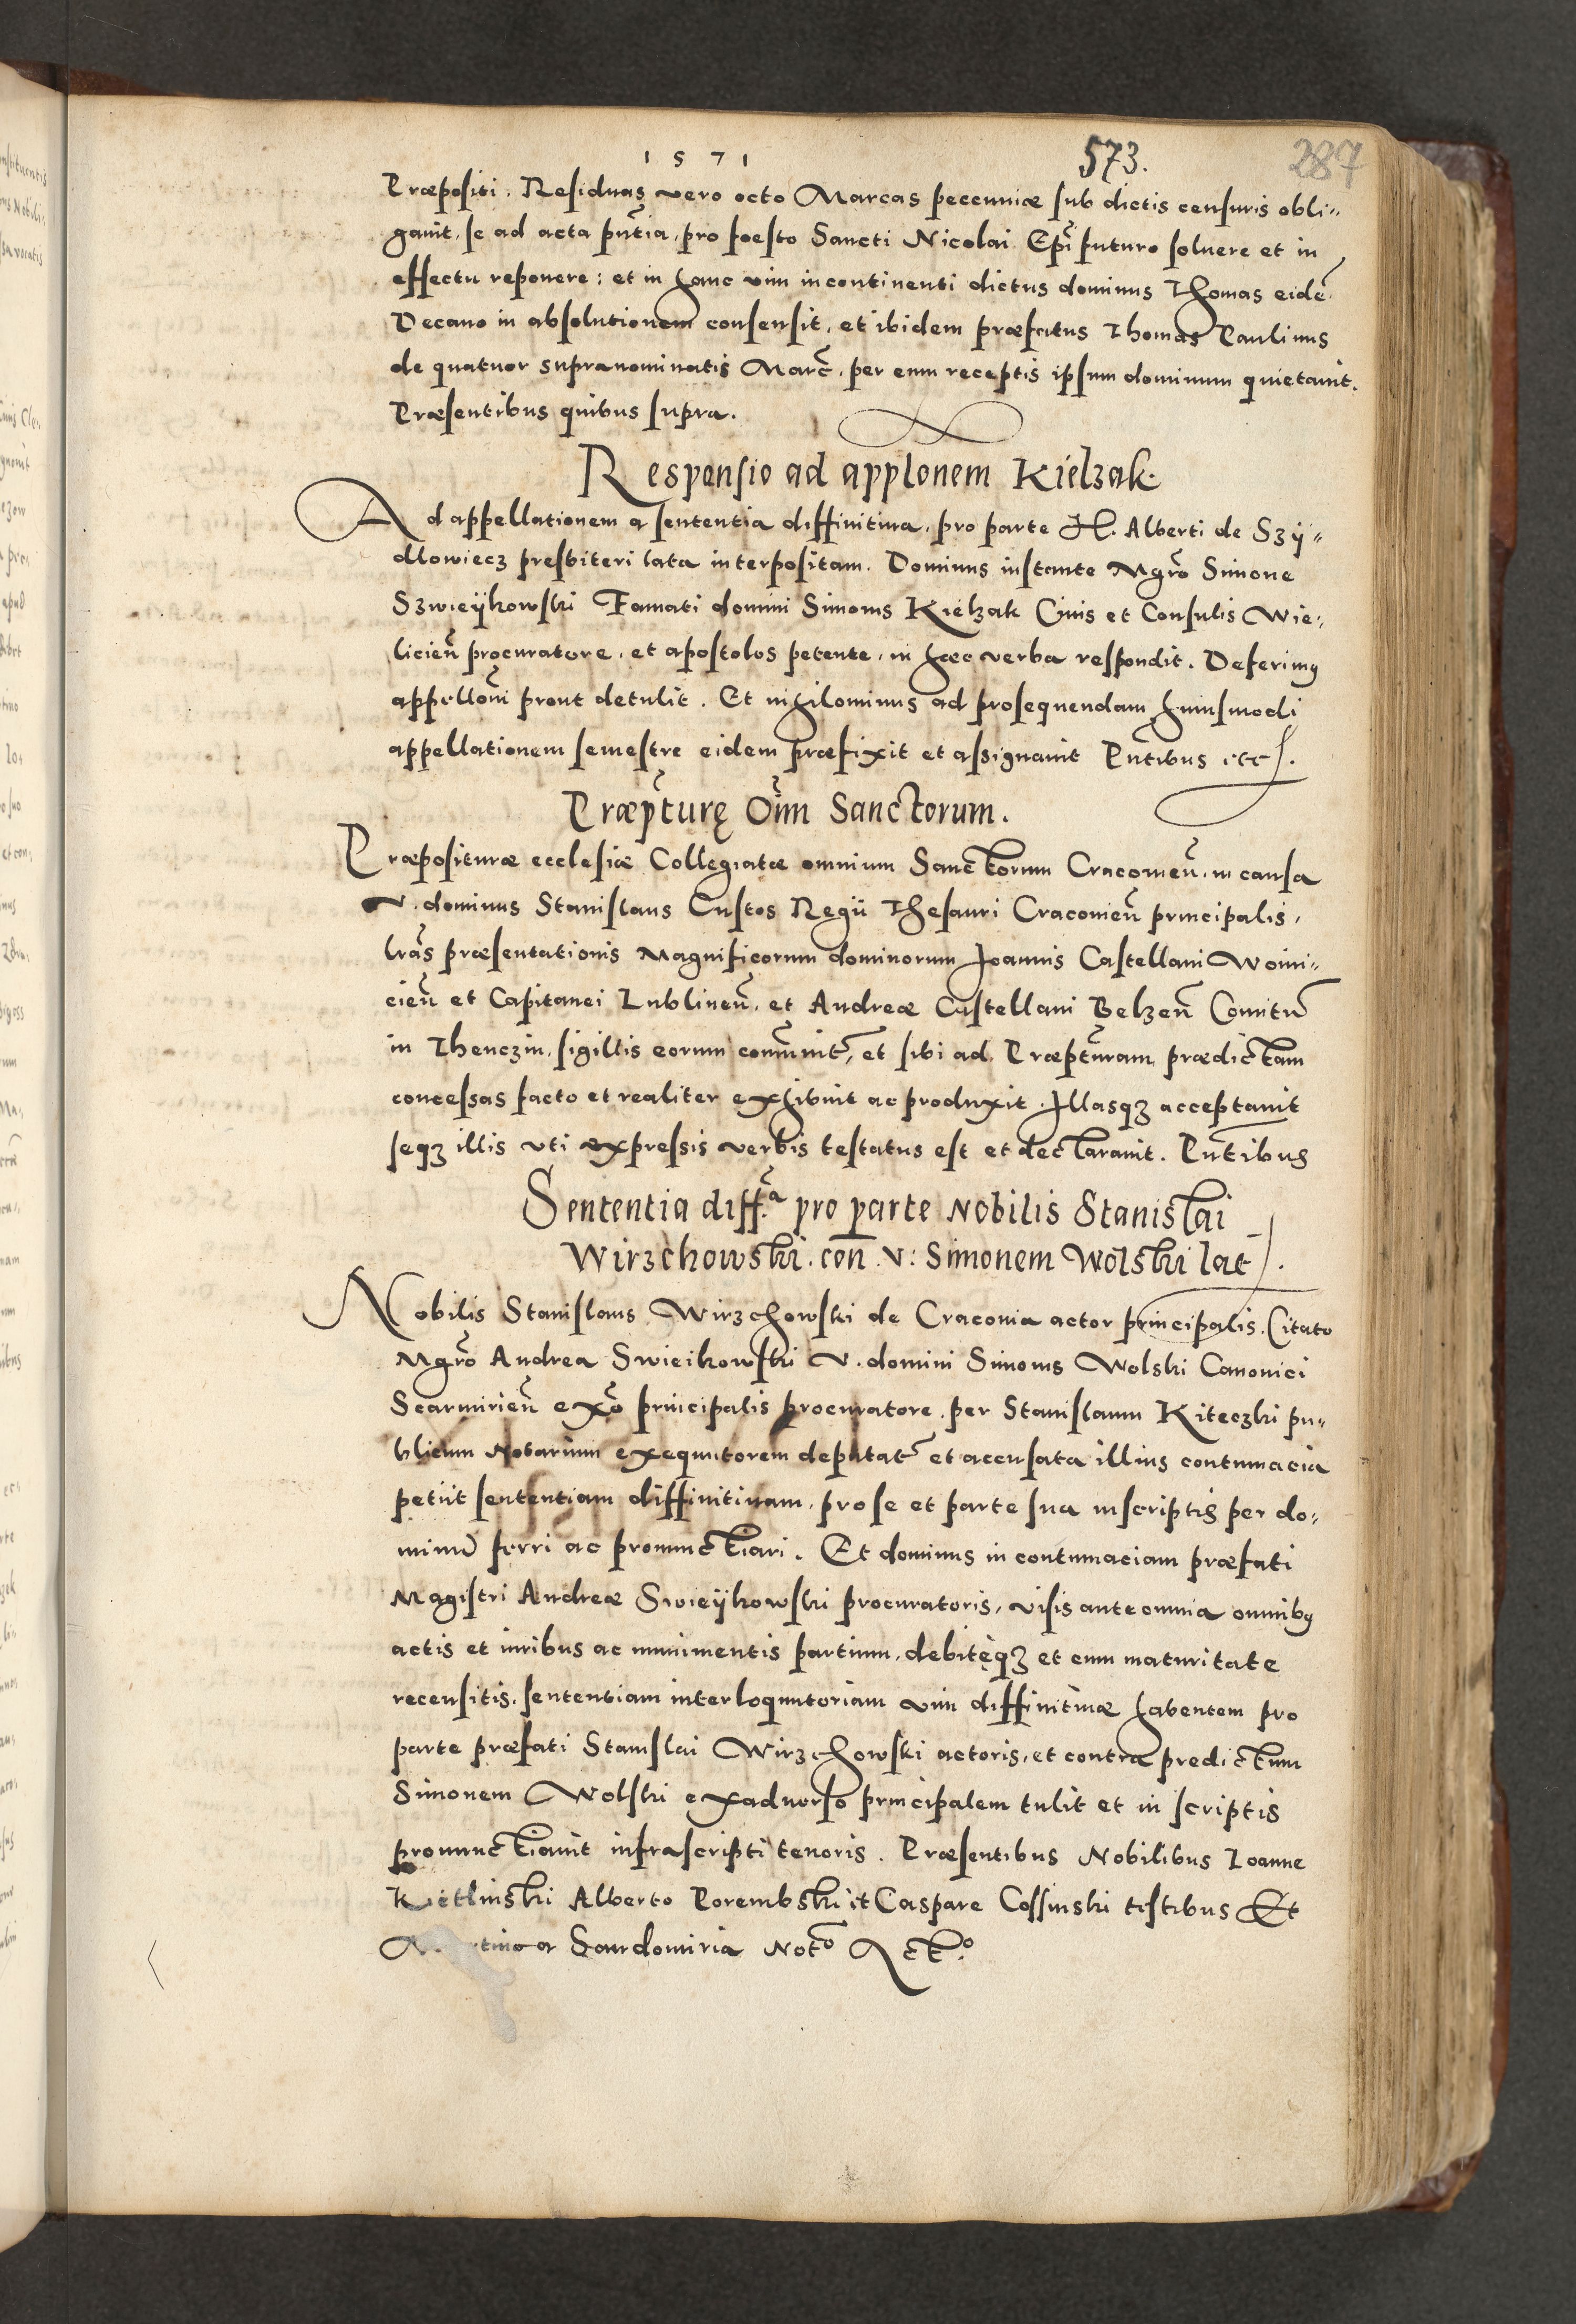 1571
573.
287
Præpositi. Residuas vero octo Marcas pecunniæ sub dictis censuris obli„
gauit, se ad acta pn̄tia, pro foesto Sancti Nicolai Epī futuro soluere et in
effectu reponere: et in hanc vim incontinenti dictus dominus Thomas eidē
Decano in absolutionem consensit, et ibidem præfatus Thomas Paulinus
de quatuor supranominatis Marc̄, per eum receptis ipsum dominum quietauit.
Præsentibus quibus supra.
Responsio ad applōnem Kielzak.
Ad appellationem a sententia diffinitiua, pro parte H. Alberti de Szÿ„
dlowiecz presbiteri lata interpositam. Dominus instante Mgrō Simone
Szwieÿkowski Famati domini Simonis Kielzak Ciuis et Consulis Wie„
licień procuratore, et apostolos petente, in hæc verba respondit. Deferimꝰ
appellōni prout detulit. Et nihilominus ad prosequendam huiusmodi
appellationem semestre eidem præfixit et assignauit Pn̄tibus etc.
Præpt̄urę Oīm Sanctorum.
Præposituræ ecclesiæ Collegiatæ omnium Sanctorum Cracouień, in causa
V. dominus Stanislaus Custos Regii Thesauri Cracouień principalis,
lrās præsentationis Magnificorum dominorum Joannis Castellani Woini„
cień et Capitanei Lublineń, et Andreæ Castellani Belzeń Comitū
in Thenczin, sigillis eorum comunit̄, et sibi ad Præpt̄uram prædictam
concessas facto et realiter exhibuit ac produxit. Illasqꝫ acceptauit
seqꝫ illis vti expressis verbis testatus est et declarauit. Pn̄tibus
Sententia diff.ᵃ pro parte Nobilis Stanislai
Wirzchowski. con̄ V: Simonem Wolski lat.
Nobilis Stanislaus Wirzchowski de Craconia actor principalis, Citato
Mgrō Andrea Swieikowski V. domini Simonis Wolski Canonici
Scarmirień exō principalis procuratore, per Stanislaum Kiteczki pu„
blicum Notarium exequutorem deputat̄ et accusata illius contumacia
petiit sententiam diffinitiuam, pro se et parte sua inscriptis per do„
minū ferri ac pronunctiari. Et dominus in contumaciam præfati
Magistri Andreæ Swieÿkowski procuratoris, visis ante omnia omnibꝰ
actis et iuribus ac munimentis partium, debitęqꝫ et cum maturitate
recensitis, sententiam interloquutoriam vim diffinitiuæ habentem pro
parte præfati Stanislai Wirzchowski actoris, et contra predictum
Simonem Wolski exaduerso principalem tulit et in scriptis
pronunctiauit infrascripti tenoris. Præsentibus Nobilibus Ioanne
Kietlinski Alberto Porembski et Caspare Cossinski testibus Et
Martino a Sandomiria Notᵒ Actᵒ.